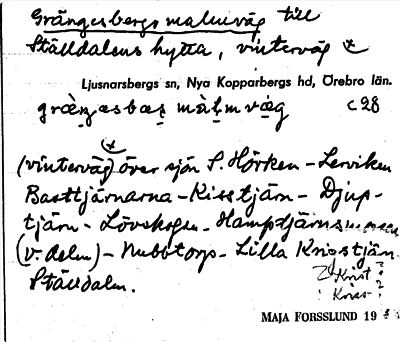 Grängesbergs malmväg till
Ställdalens hytta, vinterväg x
Ljusnarsbergs sn, Nya Kopparbergs hd, Örebro län.
c 28
(vinterväg) över sjön S. Hörken - Lerviken
Basttjärnarna - Kisstjärn - Djup-
tjärn - Lövskogen - Hamptjärnsmossen
(v. delen) - Nubbtorp - Lilla Krosstjärn
Ställdalen.
? Krist ?
: Kors ?
MAJA FORSSLUND 19